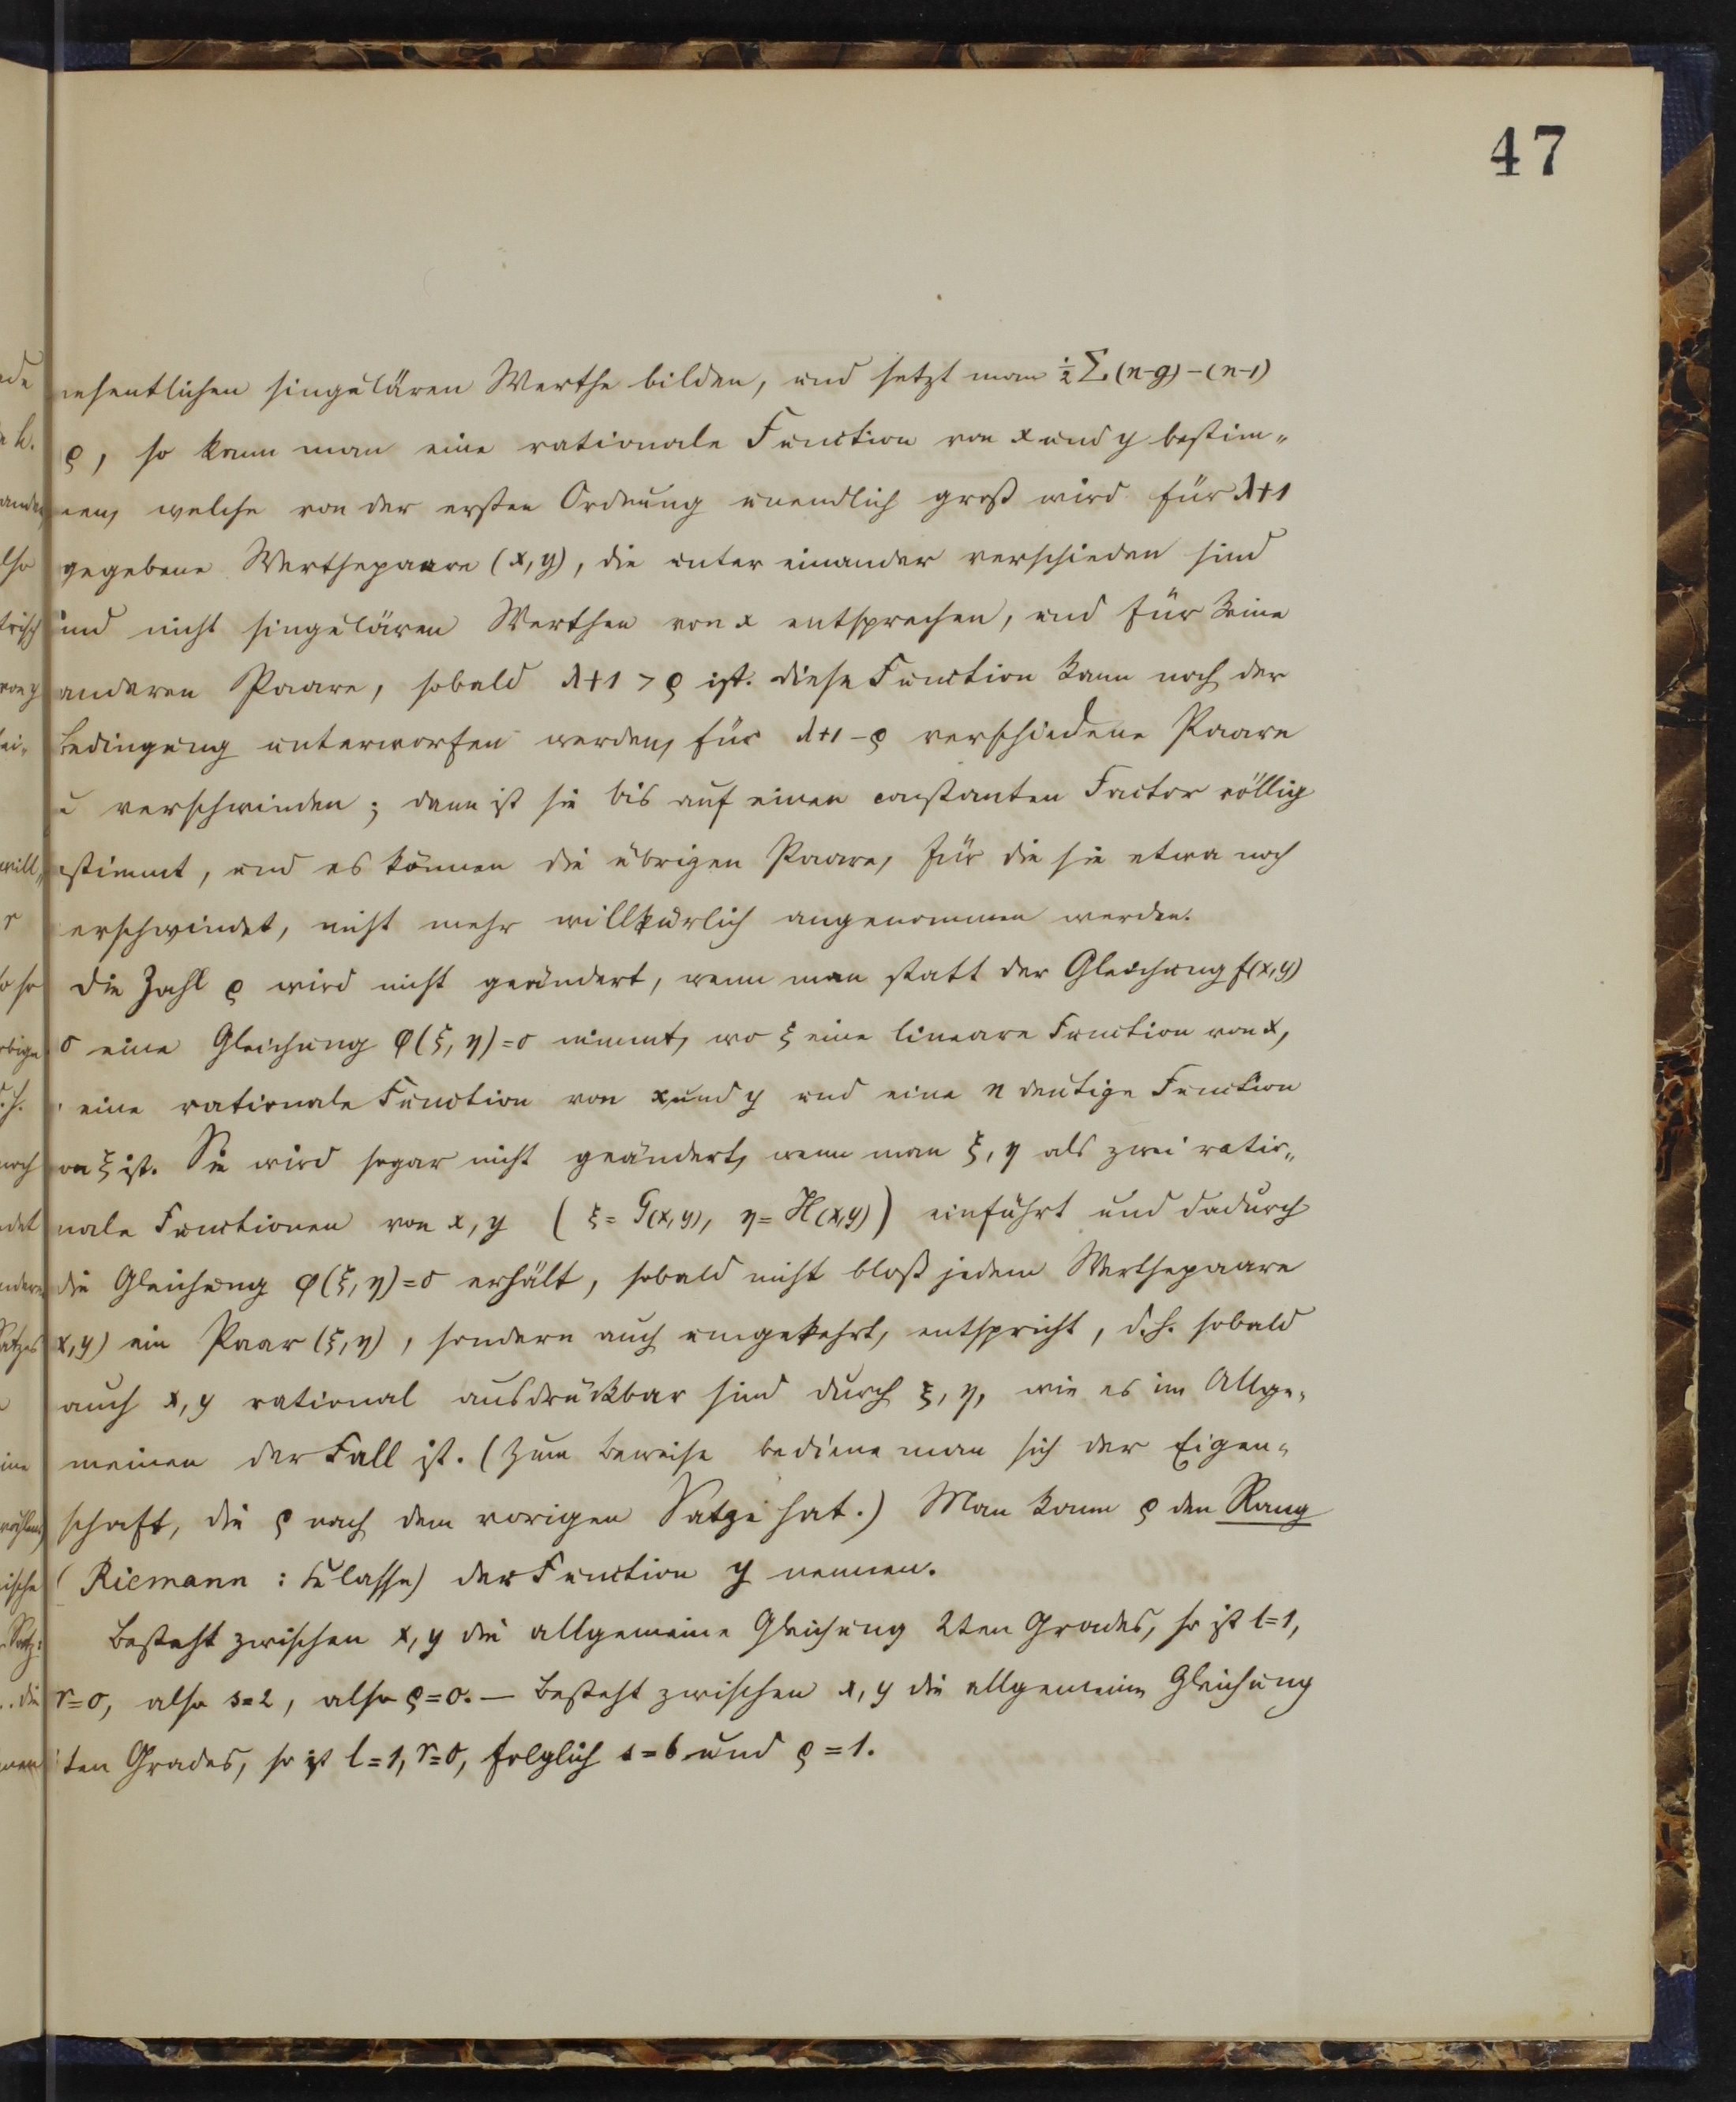 47
wesentlichen singulären Werthe bilden, und setzt man ½ Σ (n-g) - (n-1)
ρ, so kann man eine rationale Function von x und y bestim-
men, welche von der ersten Ordnung unendlich groß wird für λ+1
gegebene Werthepaare (x, y), die unter einander verschieden sind
und nicht singulären Werthen von x entsprechen, und für keine
anderen Paare, sobald λ+1 > ρ ist. Diese Function kann noch der
Bedingung unterworfen werden, für λ+1-ρ verschiedene Paare
zu verschwinden; dann ist sie bis auf einen constanten Factor völlig
bestimmt, und es können die übrigen Paare, für die sie etwa noch
verschwindet, nicht mehr willkürlich angenommen werden.
Die Zahl ρ wird nicht geändert, wenn man statt der Gleichung f(x, y)
0 eine Gleichung φ(ξ, η)=0 nimmt, wo ξ eine lineare Function von x,
eine rationale Function von x und y und eine n deutige Function
von ξ ist. Sie wird sogar nicht geändert, wenn man ξ, η als zwei ratio-
nale Functionen von x, y (ξ = G(x, y), η = H(x, y)) einführt und dadurch
die Gleichung φ(ξ, η)=0 erhält, sobald nicht bloß jedem Werthepaare
x, y) ein Paar (ξ, η), sondern auch umgekehrt, entspricht, d. h. sobald
auch x, y rational ausdrückbar sind durch ξ, η, wie es im Allge-
meinen der Fall ist. (Zum Beweise bediene man sich der Eigen-
schaft, die ρ nach dem vorigen Satze hat.) Man kann ρ den Rang
(Riemann: Klasse) der Function y nennen.
Besteht zwischen x, y die allgemeine Gleichung 2ten Grades, so ist l=1,
r=0, also s=2, also ρ=0. — Besteht zwischen x, y die allgemeine Gleichung
ten Grades, so ist l=1, r=0, folglich s=6 und ρ=1.